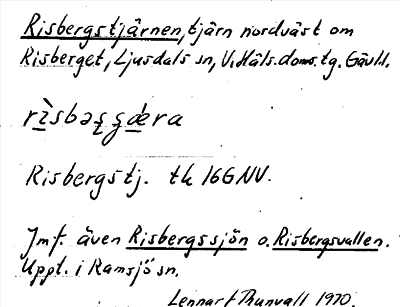 Risbergstjärnen, tjärn nordväst om
Risberget, Ljusdals sn, V. Häls. doms. tg. Gävll.
Risbergstj. tk 16G NV.
Jmf. även Risbergssjön o. Risbergsvallen.
Uppt. i Ramsjö sn.
Lennart Thunvall 1970.